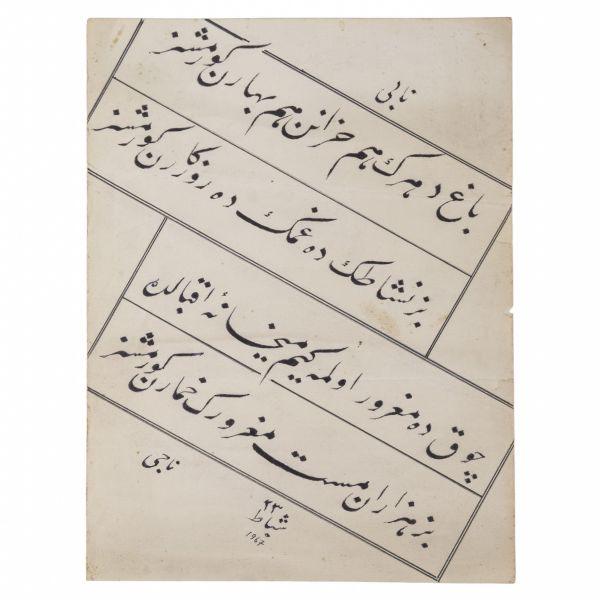 نابى
باغ دهرك هم خزانن هم بهارن كورمشز
بز نشاطك ده غمك ده روزكارن كورمشز
چوق ده مغرور اولمه كيم ميخانۀ اقبالده
بز هزاران مست مغرورك خمارن كورمشز
ناجى
٢٣
شباط
1967